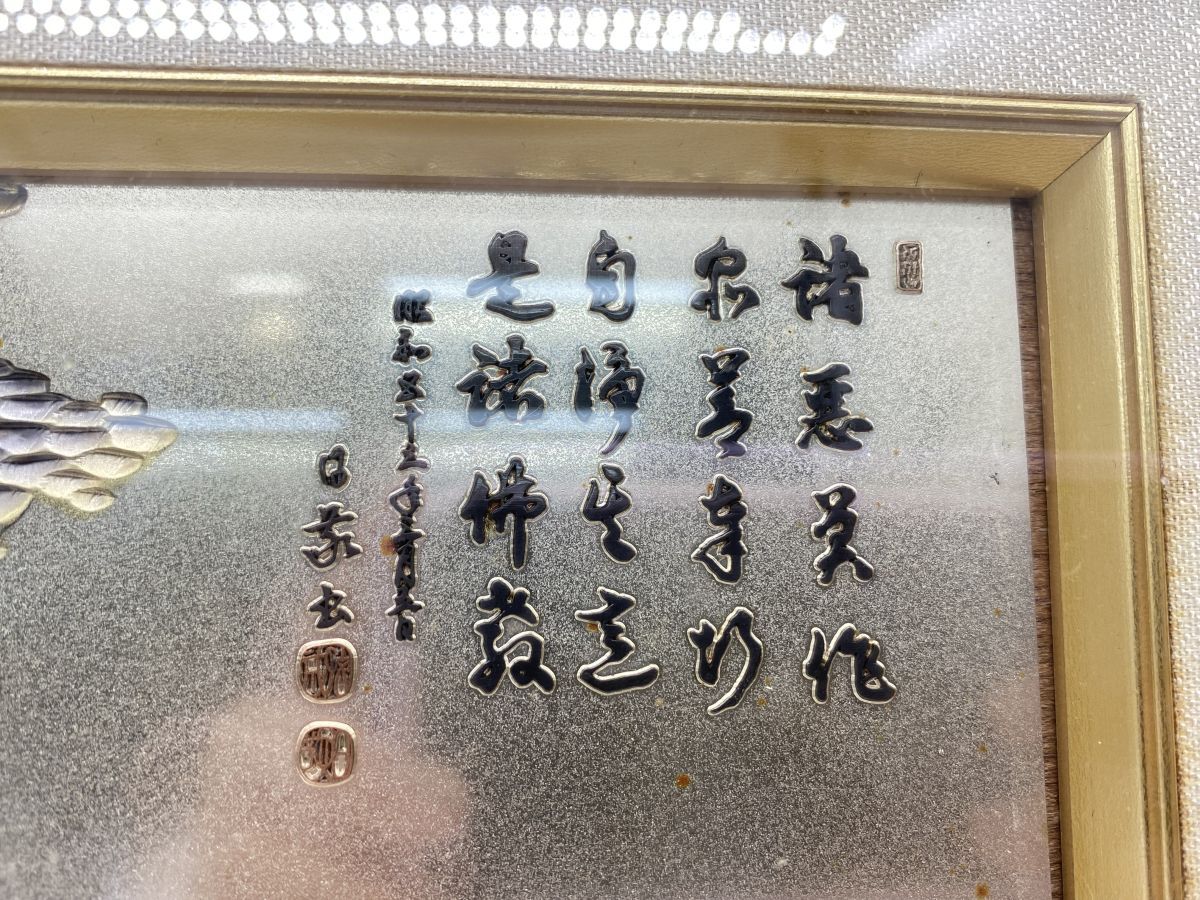 諸悪莫作
衆善奉行
自浄其意
是諸佛教
昭和五十三年三月五日
日敬書